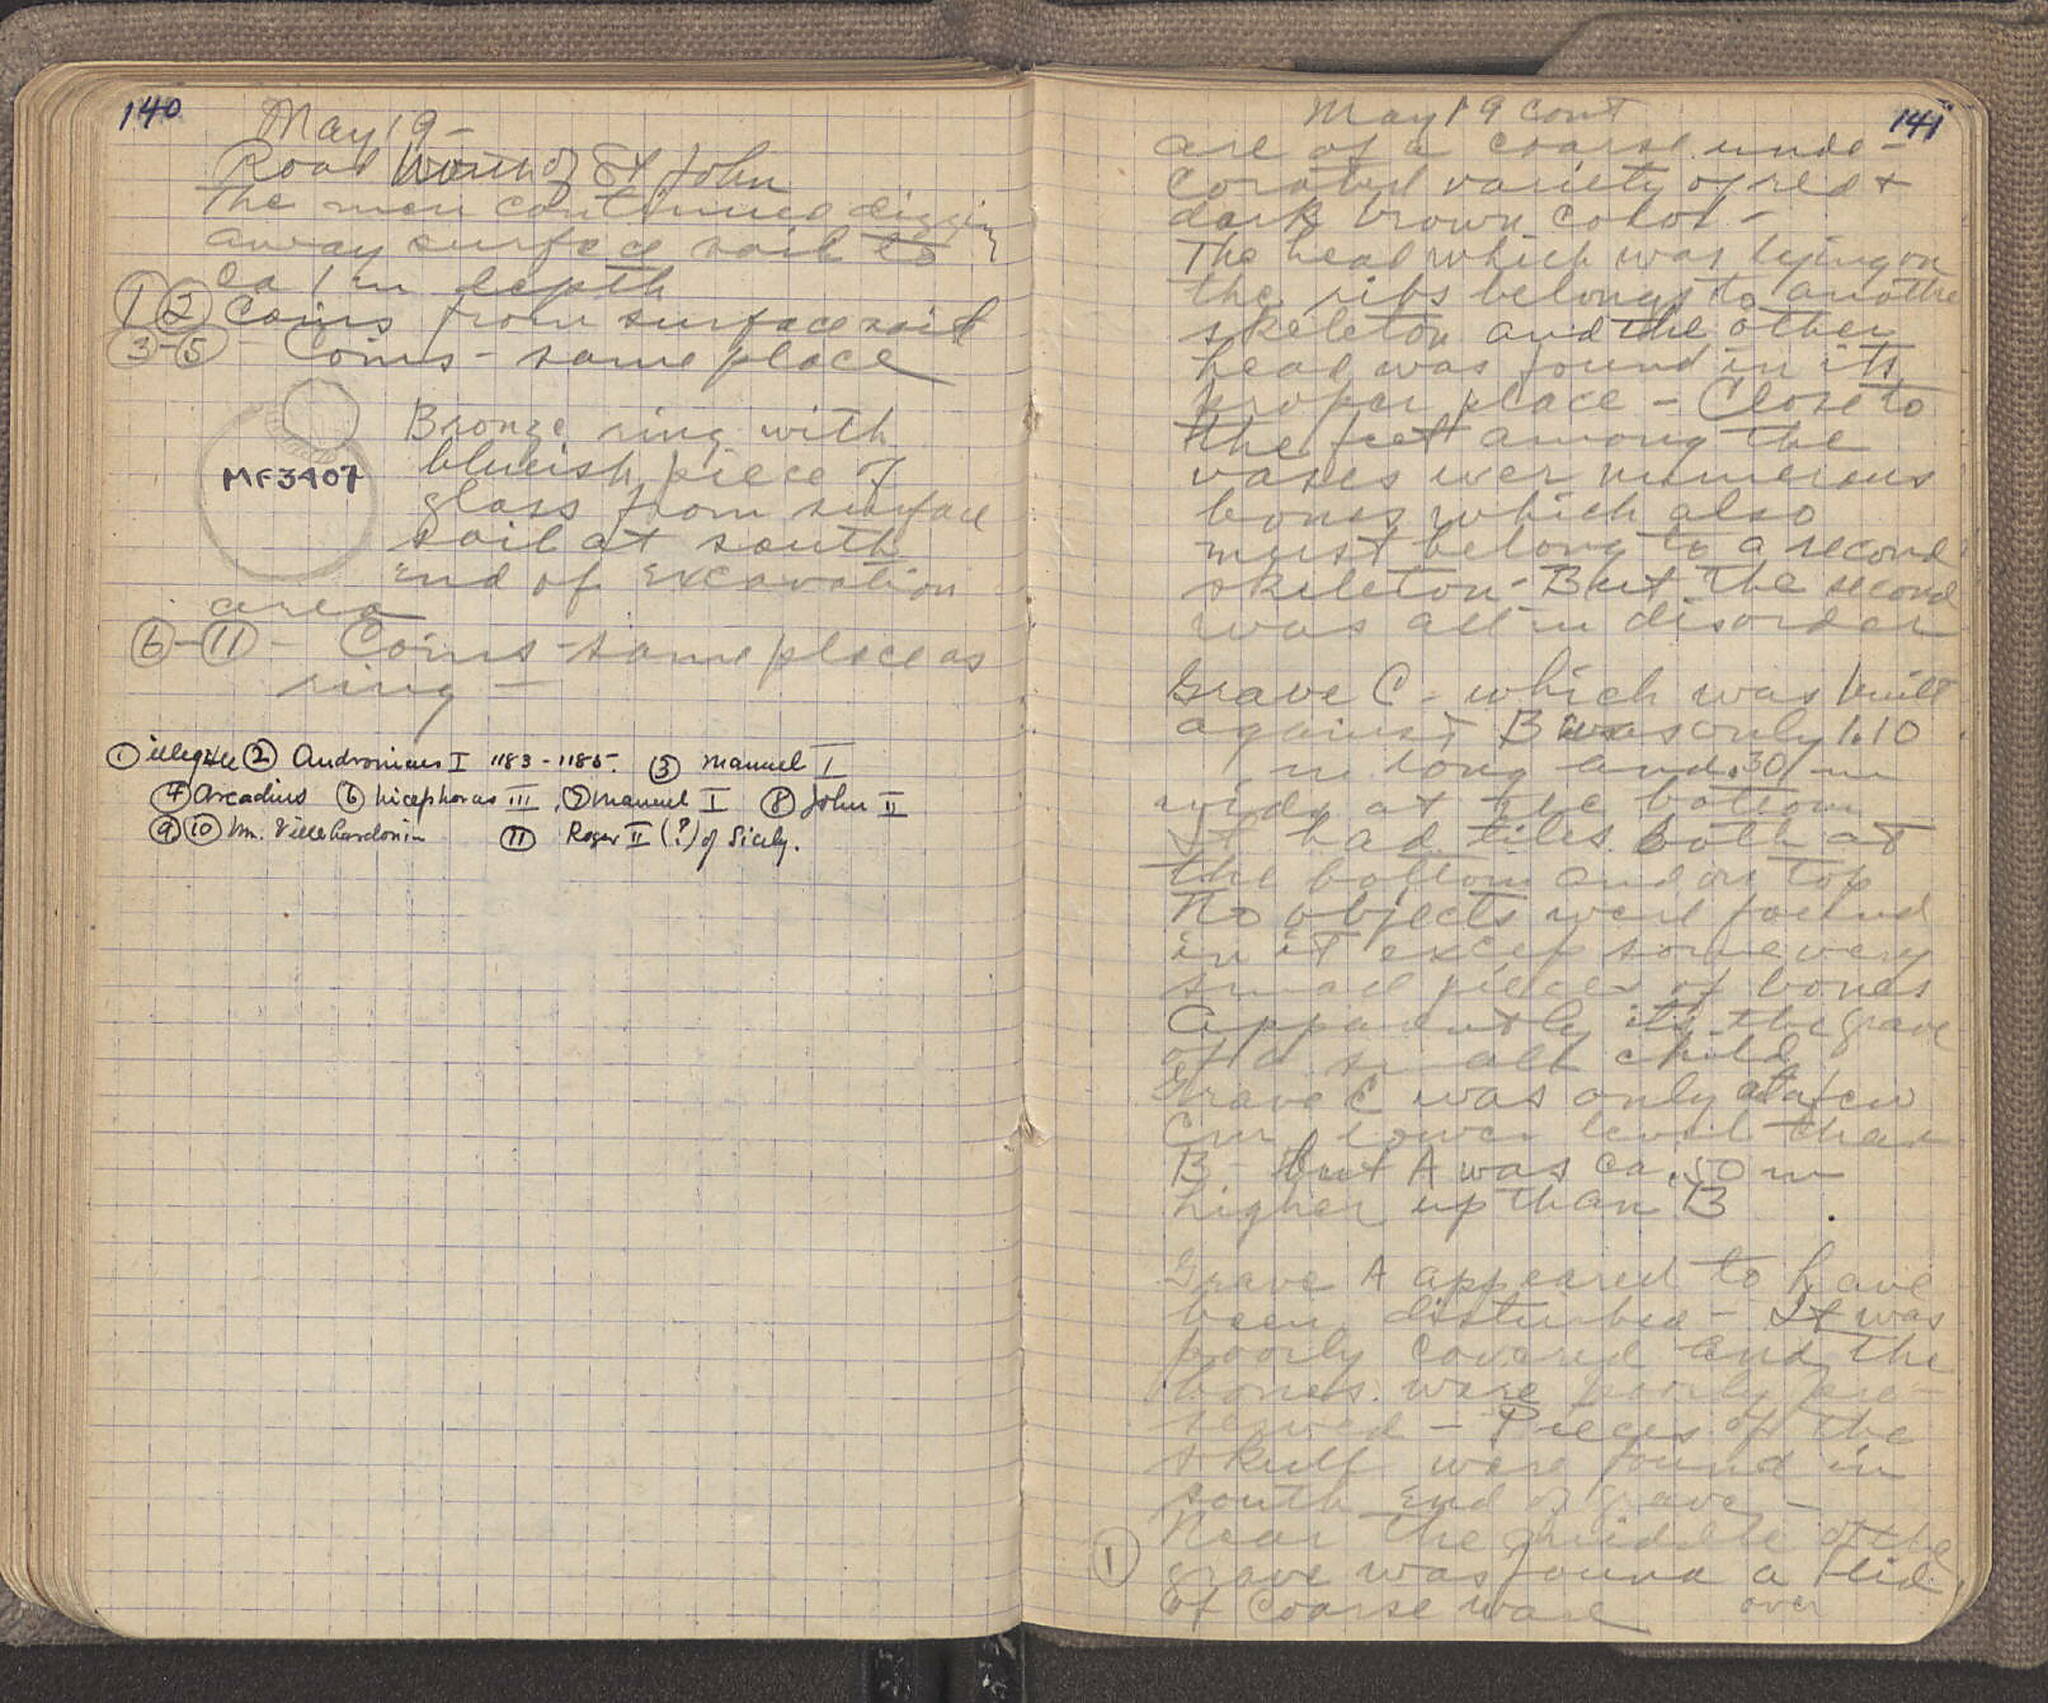 140
May 19 -
Road North of St John
The men continued digging
away surface soil to
ca 1 m depth
① ② Coins from surface soil
③-⑤ - Coins - same place
Bronze ring with
blueish piece of
MF3407
glass from surface
soil at south
end of excavation
area
⑥-⑪ - Coins - same place as
ring -
① illegible ② Andronicus I 1183-1185. ③ Manuel I
④ Arcadius ⑥ Nicephorus III, ⑦ Manuel I ⑧ John II
⑨ ⑩ Wm. Villehardouin ⑪ Roger II (?) of Sicily.
141
May 19 cont
are of a coarse unde-
corated variety of red +
dark brown color -
The head which was lying on
the ribs belongs to anothe
skeleton and the other
head was found in its
proper place - Close to
the feet among the
vases wer numerous
bones which also
must belong to a second
skeleton - But the second
was all in disorder
Grave C - which was built
against B was only 1.10
m long and .30 m
wide at the bottom
It had tiles both at
the bottom and on top
No objects were found
in it excep some very
small pieces of bones
Apparently its the grave
of a small child
Grave C was only at a few
cm lower level than
B - but A was ca .50 m
higher up than B
Grave A appeared to have
been disturbed - It was
poorly covered and the
bones were poorly pre-
served - Pieces of the
skull were found in
south end of grave -
Near the middle of the
① grave was found a lid
of coarse ware over